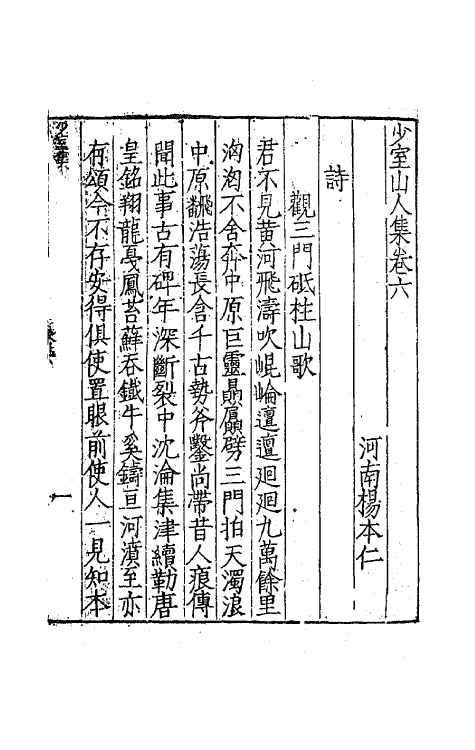 少室山人集卷六
河南楊本仁
詩
觀三門砥柱山歌
君不見黄河飛濤吹崐崘邅邅廻廻九萬餘里
洶洶不舍奔中原巨靈贔屭劈三門拍天濁浪
中原飜浩蕩長含千古勢斧鑿尚帶昔人痕傳
聞此事古有碑年深斷裂中沈淪集津續勒唐
皇銘翔龍戞鳳苔蘚吞鐵牛奚鑄亘河濆至亦
有頌今不存安得俱使置眼前使人一見知本
一